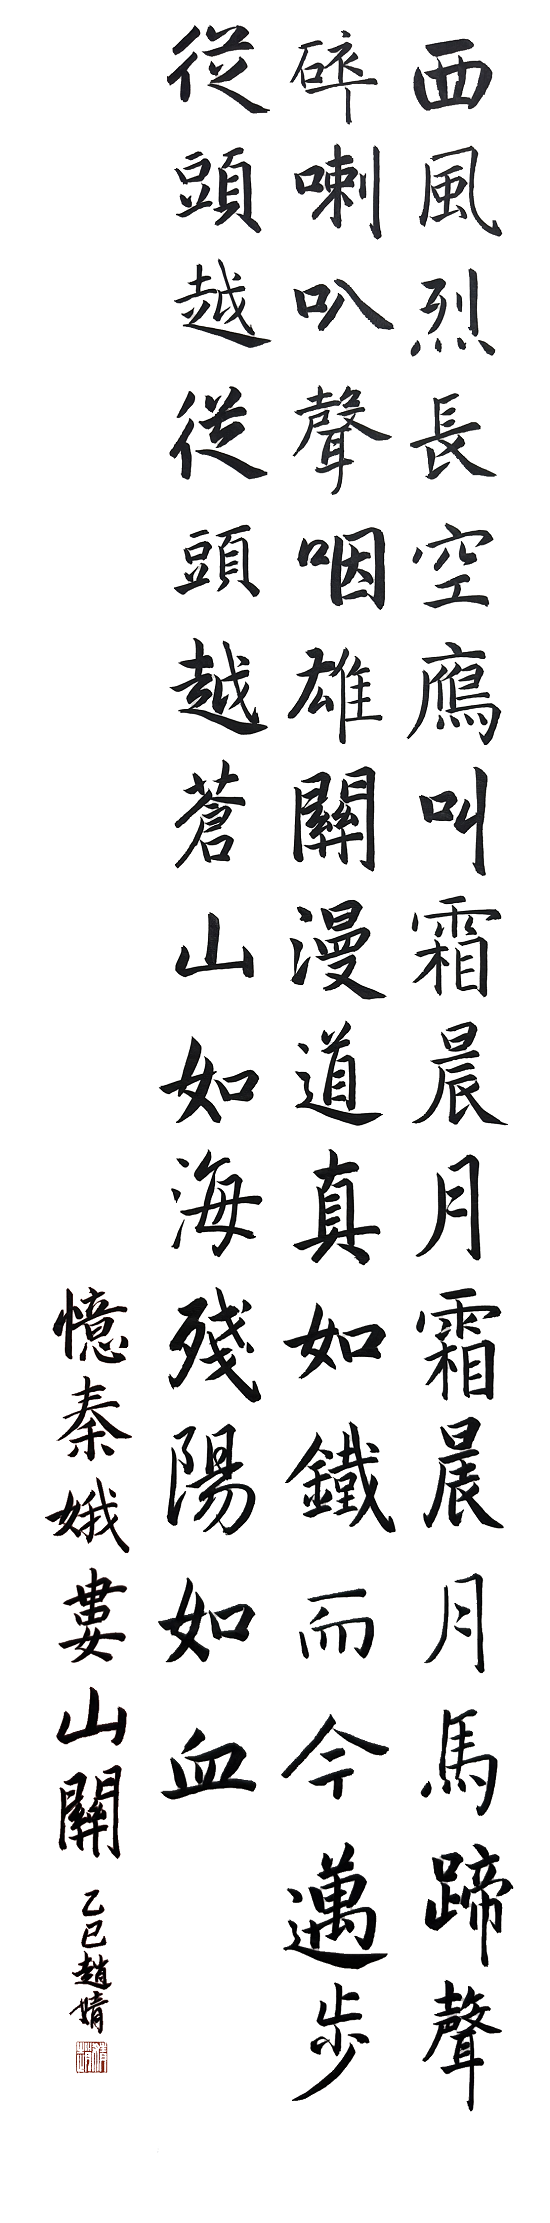 西風烈長空鴈叫霜晨月霜晨月馬蹄聲
碎喇叭聲咽雄關漫道真如鐵而今邁步
從頭越從頭越蒼山如海殘陽如血
憶秦娥婁山關
乙巳趙婧